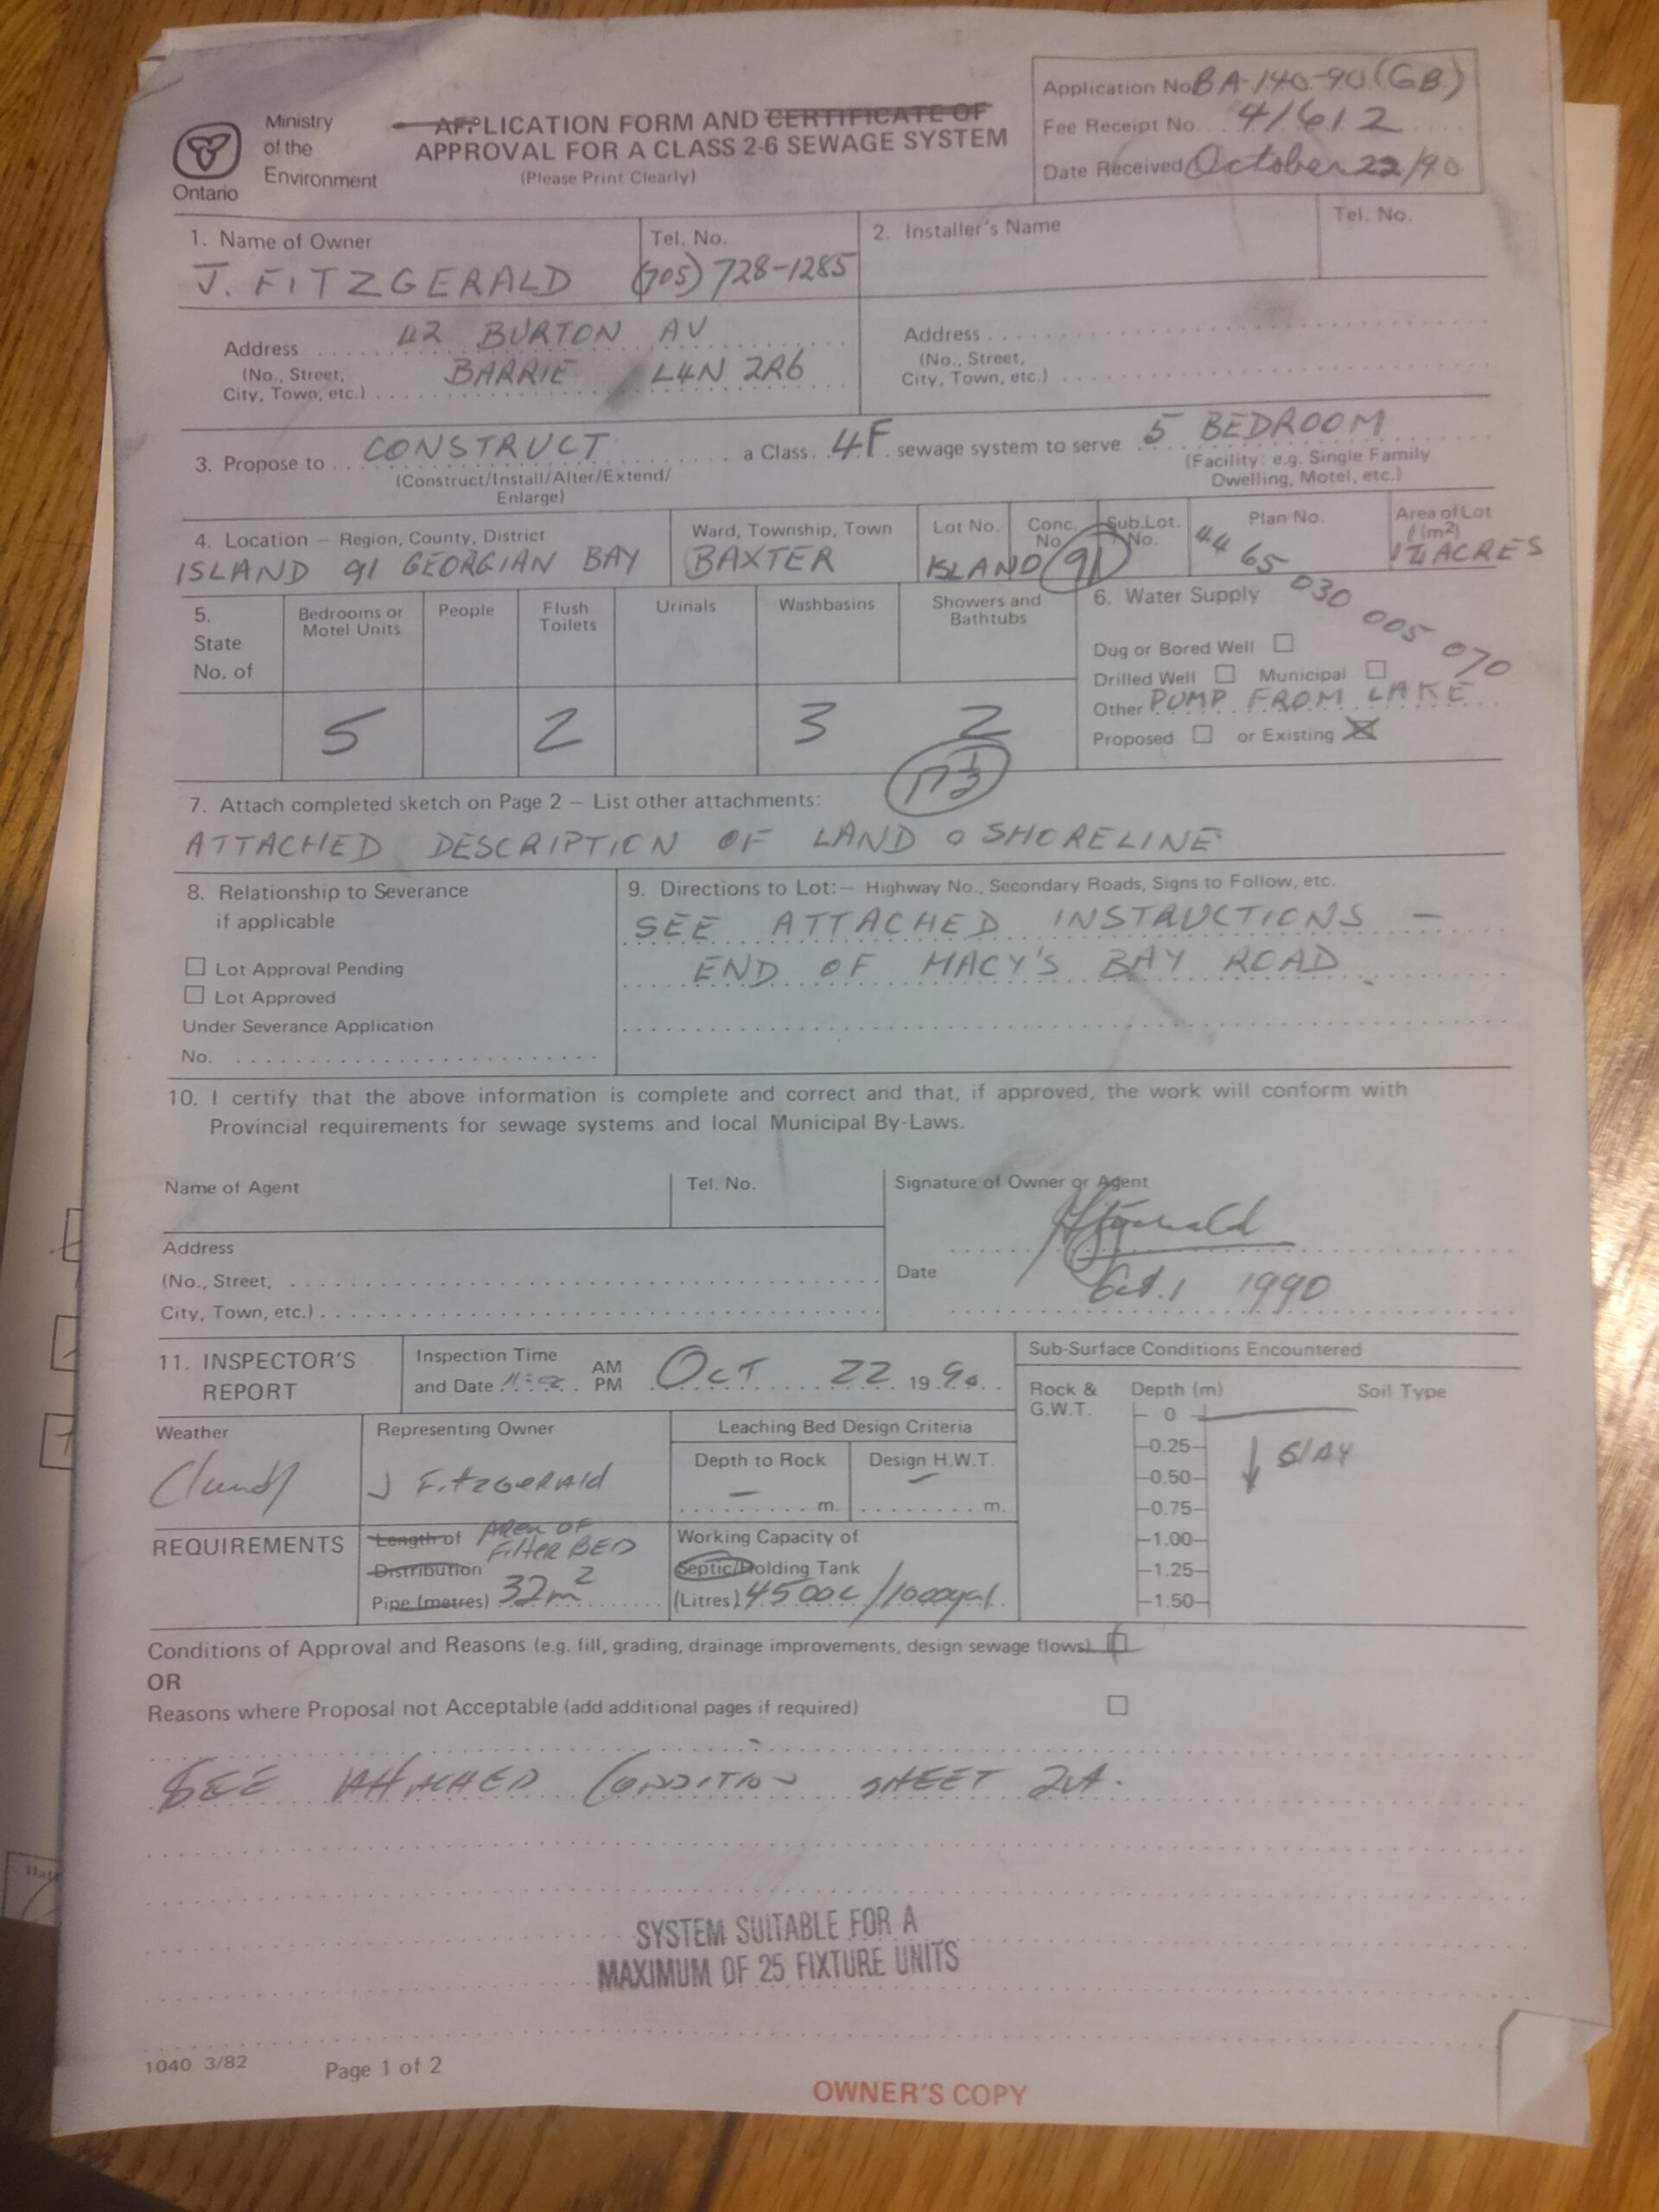 Ontario
Ministry
of the
Environment
APPLICATION FORM AND CERTIFICATE OF
APPROVAL FOR A CLASS 2-6 SEWAGE SYSTEM
(Please Print Clearly)
Application No BA-140-90 (GB)
Fee Receipt No. 41612
Date Received October 22/90
1. Name of Owner
J. FITZGERALD
Tel. No.
(705) 728-1285
2. Installer's Name
Tel. No.
Address 42 BURTON AV
(No., Street, BARRIE L4N 2R6
City, Town, etc.)
Address
(No., Street,
City, Town, etc.)
3. Propose to CONSTRUCT a Class 4F sewage system to serve 5 BEDROOM
(Construct/Install/Alter/Extend/
Enlarge)
(Facility: e.g. Single Family
Dwelling, Motel, etc.)
4. Location – Region, County, District
ISLAND 91 GEORGIAN BAY
Ward, Township, Town
BAXTER
Lot No.
Conc.
No.
Sub.Lot.
No.
ISLAND 91
Plan No.
Area of Lot
(m2)
ACRES
44 65 030 005 070
5.
State
No. of
Bedrooms or
Motel Units
People
Flush
Toilets
Urinals
Washbasins
Showers and
Bathtubs
5 2 3 2
6. Water Supply
Dug or Bored Well
Drilled Well Municipal
Other PUMP FROM LAKE
Proposed or Existing
7. Attach completed sketch on Page 2 – List other attachments:
ATTACHED DESCRIPTION OF LAND SHORELINE
8. Relationship to Severance
if applicable
Lot Approval Pending
Lot Approved
Under Severance Application
No.
9. Directions to Lot:– Highway No., Secondary Roads, Signs to Follow, etc.
SEE ATTACHED INSTRUCTIONS –
END OF MACY'S BAY ROAD
10. I certify that the above information is complete and correct and that, if approved, the work will conform with
Provincial requirements for sewage systems and local Municipal By-Laws.
Name of Agent
Tel. No.
Signature of Owner or Agent
Address
(No., Street,
City, Town, etc.)
Date
Oct. 1 1990
11. INSPECTOR'S
REPORT
Inspection Time
and Date AM
PM OCT 22 19 90
Sub-Surface Conditions Encountered
Rock &
G.W.T.
Depth (m)
Soil Type
0
0.25
0.50
0.75
1.00
1.25
1.50
Weather
Representing Owner
J FitzGERAld
Leaching Bed Design Criteria
Depth to Rock
– m.
Design H.W.T.
– m.
REQUIREMENTS
Length of AREA OF
Filter BED
Distribution
Pipe (metres) 32m2
Working Capacity of
Septic/Holding Tank
(Litres) 4500L/1000gal
Conditions of Approval and Reasons (e.g. fill, grading, drainage improvements, design sewage flows)
OR
Reasons where Proposal not Acceptable (add additional pages if required)
SEE ATTACHED CONDITION SHEET 2A.
SYSTEM SUITABLE FOR A
MAXIMUM OF 25 FIXTURE UNITS
1040 3/82
Page 1 of 2
OWNER'S COPY